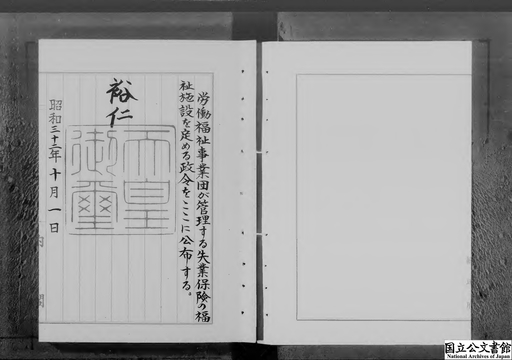 労働福祉事業団が管理する失業保険の福
祉施設を定める政令をここに公布する。
裕仁
天皇
御璽
昭和三十二年十月一日
国立公文書館
National Archives of Japan